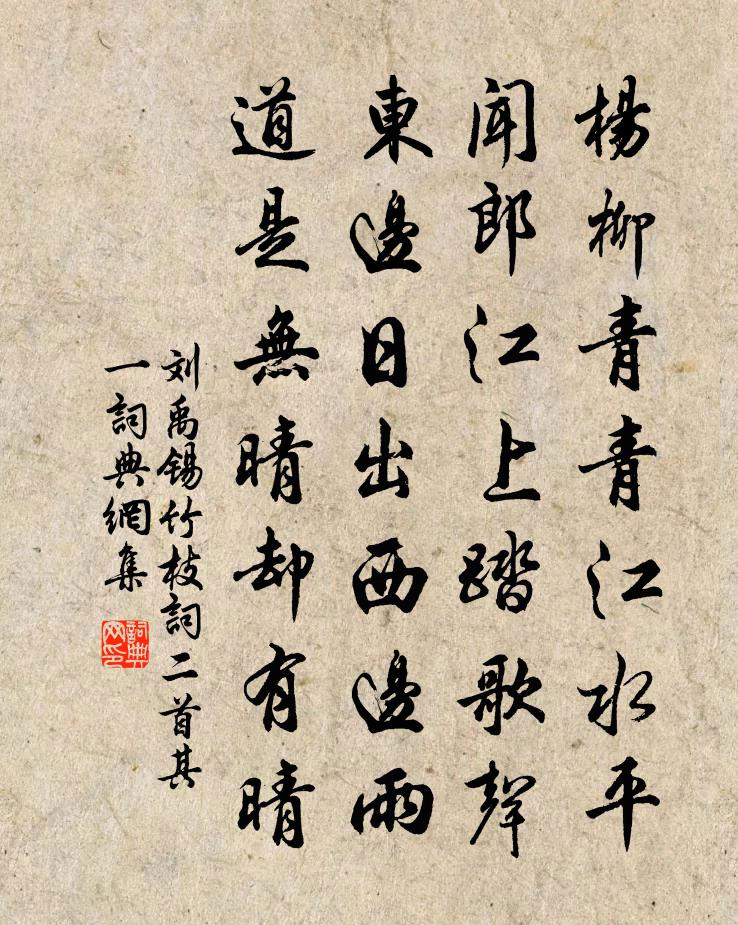 楊柳青青江水平
聞郎江上踏歌聲
東邊日出西邊雨
道是無晴却有晴
刘禹錫竹枝詞二首其
一詞典網集
詞典網印